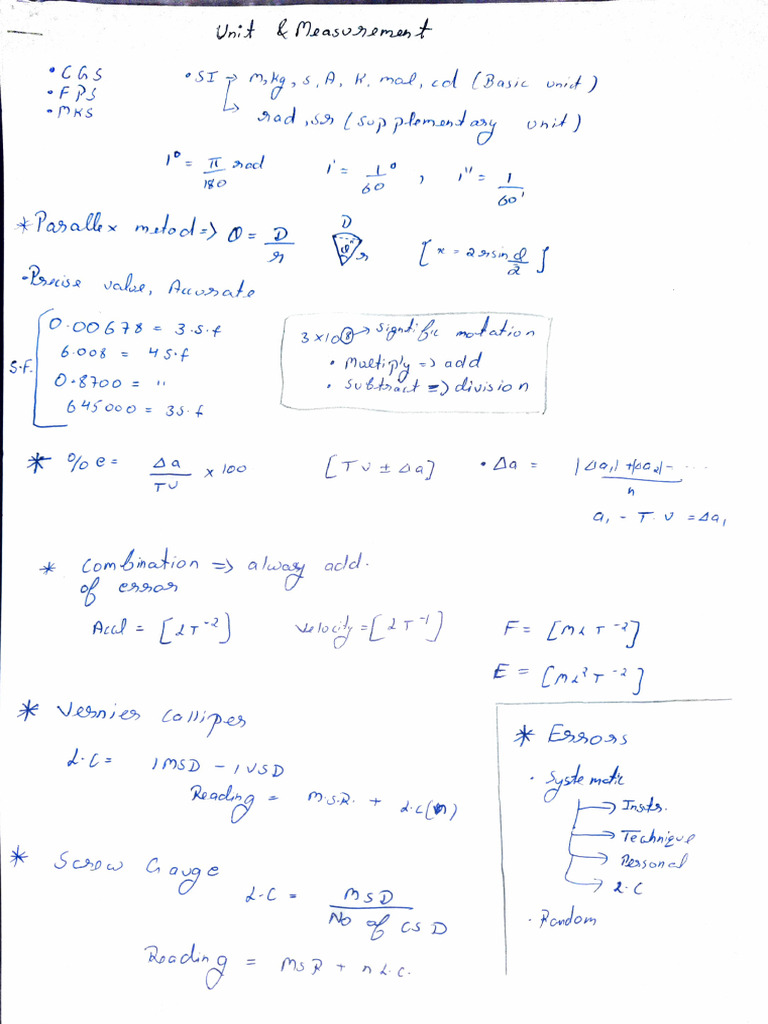 Unit & Measurement
• CGS
• FPS
• MKS
• SI → m, kg, s, A, K, mol, cd (Basic unit)
↳ rad, sr (supplementary unit)
1° = π/180 rad   1' = 1/60°, 1'' = 1/60'
* Parallex metod => θ = D/r   D θ r   [x = 2r sin d/2]
• Precise value, Accurate
S.F.
0.00678 = 3.s.f
6.008 = 4 s.f
0.8700 = "
645000 = 3 s.f
3×10⁸ → signific notation
• Multiply => add
• subtract => division
* % e = Δa/TV × 100   [TV ± Δa]   • Δa = |Δa₁| + |Δa₂| - .../n
a₁ - T.V = Δa₁
* Combination => alway add.
of error
Accl = [LT⁻²]   Velocity = [LT⁻¹]   F = [MLT⁻²]
E = [ML²T⁻²]
* Vernier Calliper
L.C = 1MSD - 1VSD
Reading = M.S.R. + L.C(n)
* Screw Gauge
L.C = MSD/No of CSD
Reading = MSR + n L.C.
* Errors
• Systematic
→ Instr.
→ Technique
→ Personal
→ L.C
• Random